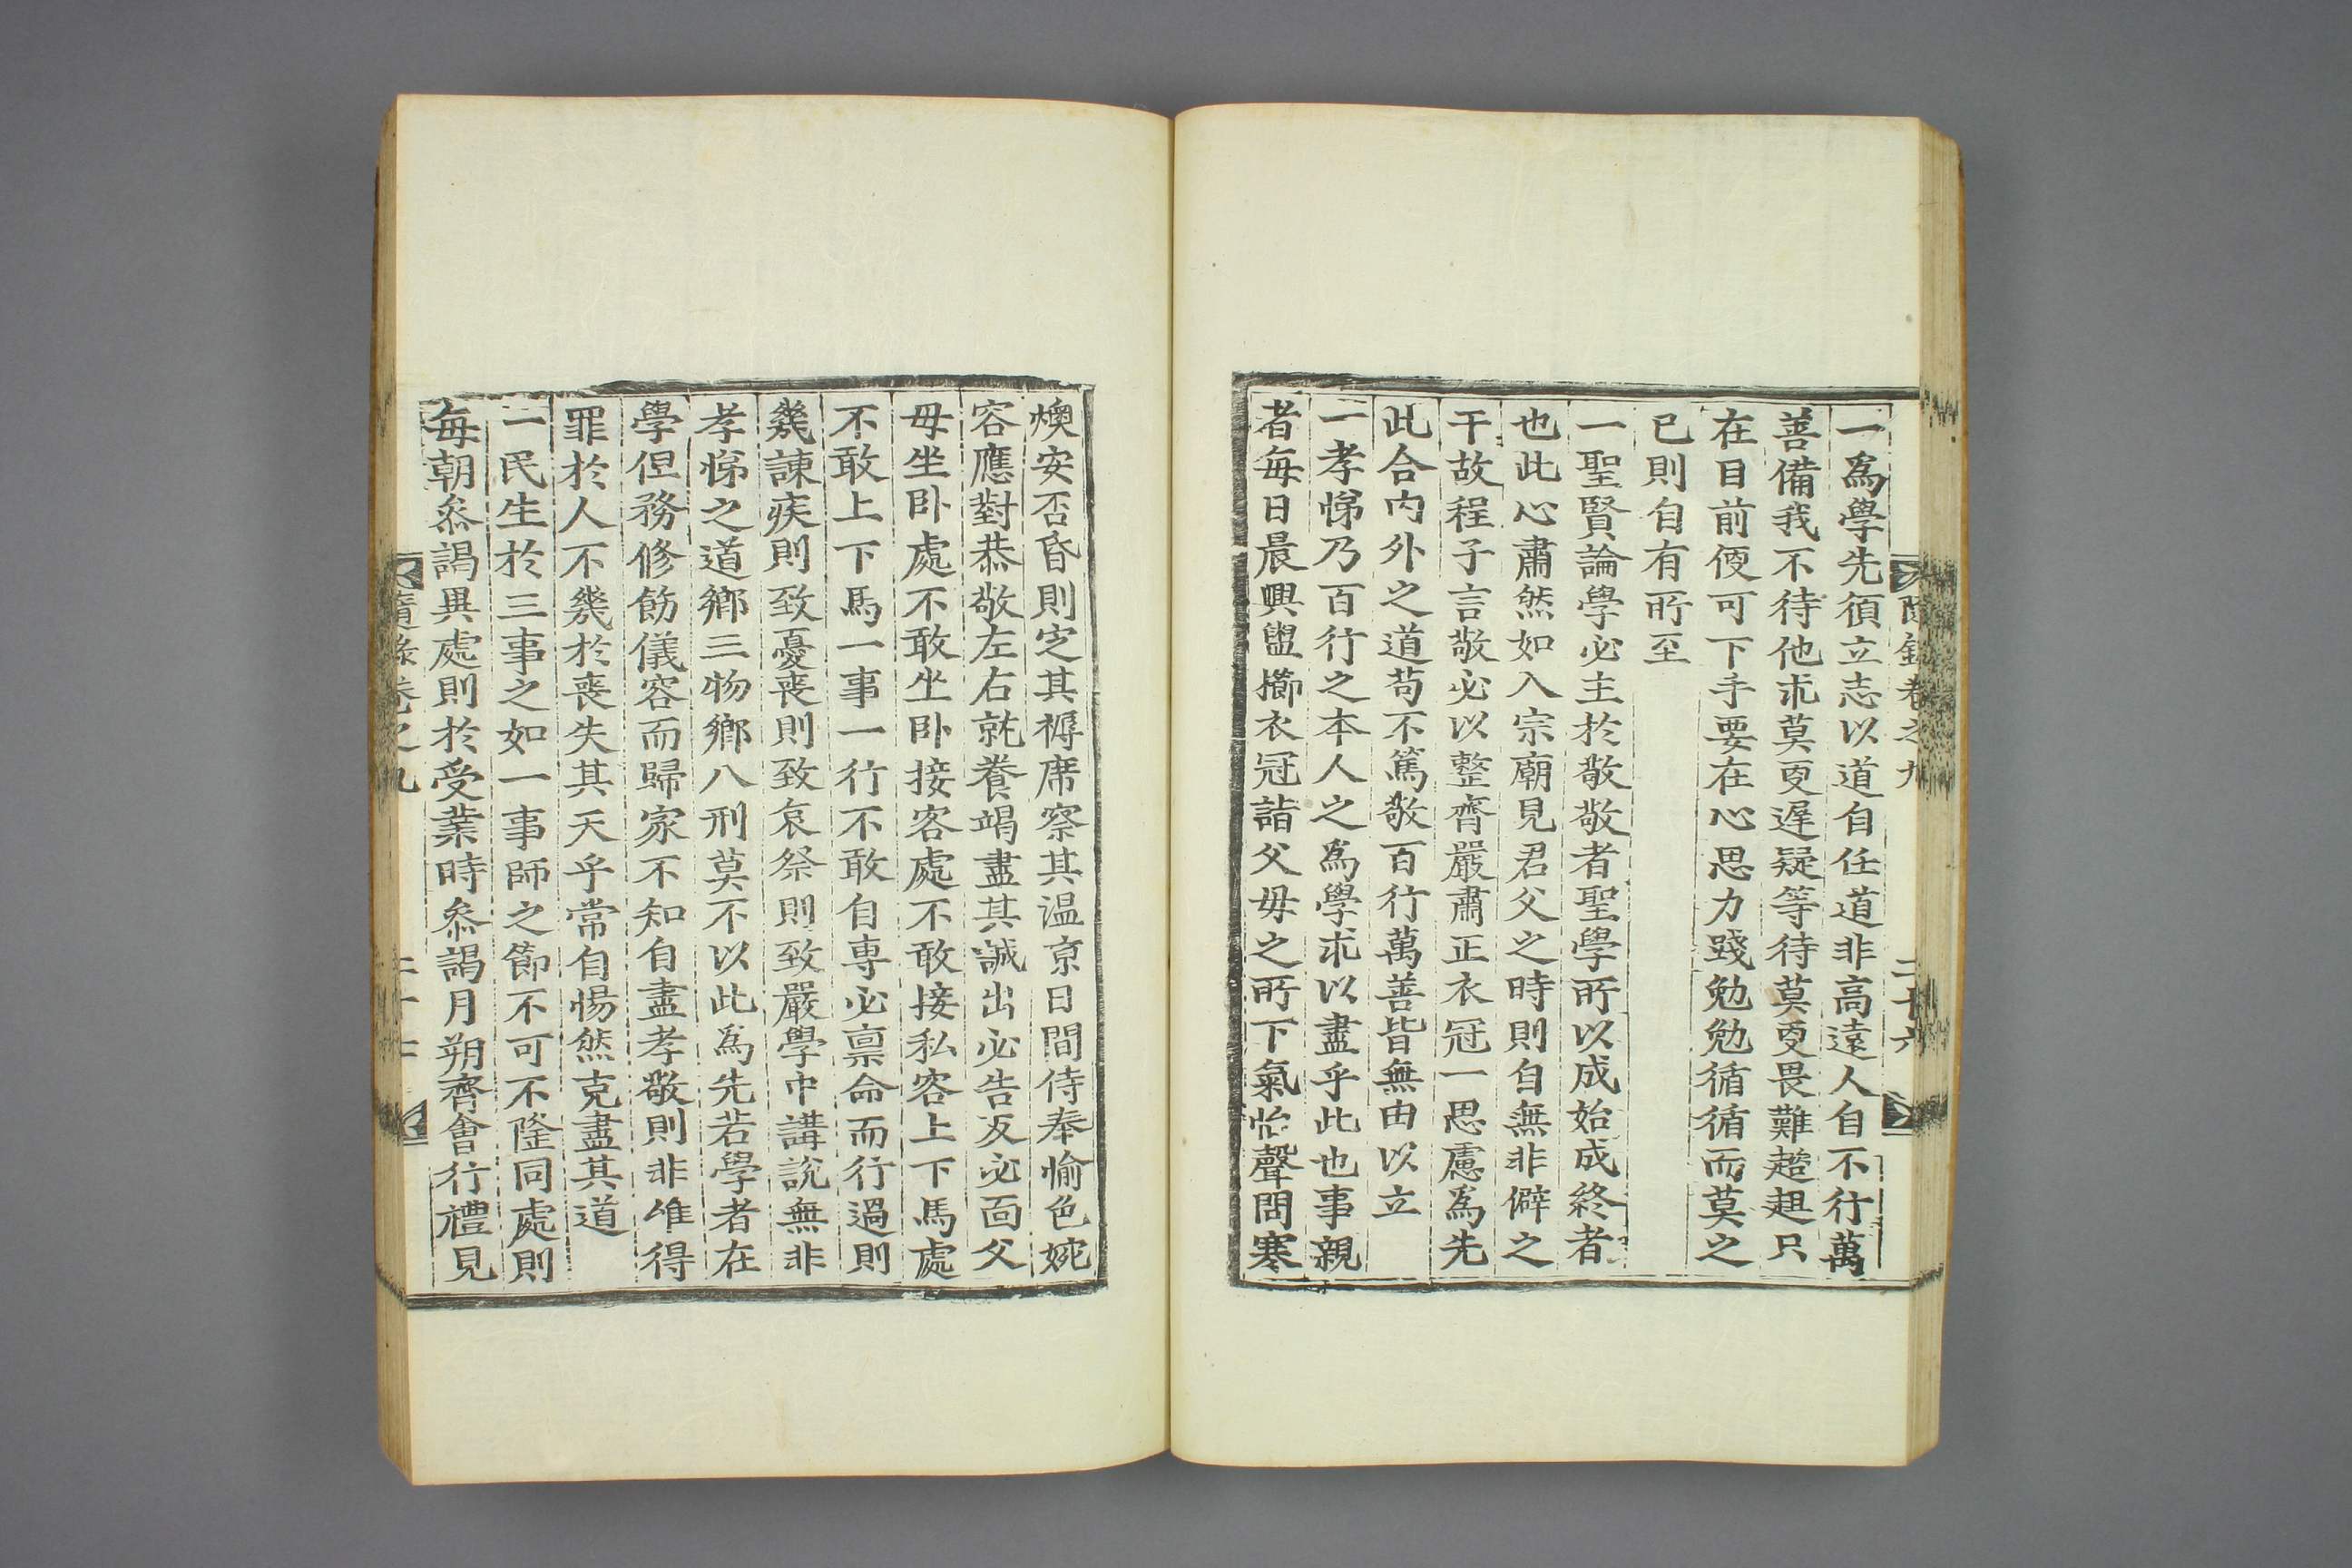 隨錄卷之九
二十六
一爲學先須立志以道自任道非高遠人自不行萬
善備我不待他求莫更遲疑等待莫更畏難趑趄只
在目前便可下手要在心思力踐勉勉循循而莫之
已則自有所至
一聖賢論學必主於敬敬者聖學所以成始成終者
也此心肅然如入宗廟見君父之時則自無非僻之
干故程子言敬必以整齊嚴肅正衣冠一思慮爲先
此合內外之道苟不篤敬百行萬善皆無由以立
一孝悌乃百行之本人之爲學求以盡乎此也事親
者每日晨興盥櫛衣冠詣父母之所下氣怡聲問寒
燠安否昏則定其褥席察其温凉日間侍奉愉色婉
容應對恭敬左右就養竭盡其誠出必告返必面父
母坐卧處不敢坐卧接客處不敢接私客上下馬處
不敢上下馬一事一行不敢自專必禀命而行過則
幾諫疾則致憂喪則致哀祭則致嚴學中講說無非
孝悌之道鄕三物鄕八刑莫不以此爲先若學者在
學但務修飭儀容而歸家不知自盡孝敬則非惟得
罪於人不幾於喪失其天乎常自惕然克盡其道
一民生於三事之如一事師之節不可不隆同處則
每朝叅謁異處則於受業時叅謁月朔齊會行禮見
隨錄卷之九
二十七